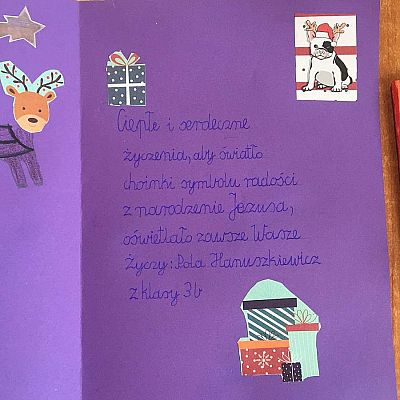 Ciepłe i serdeczne
życzenia, aby światło
choinki symbolu radości
z narodzenie Jezusa,
oświetlało zawsze Wasze
Życzy: Pola Hanuszkiewicz
z klasy 3b